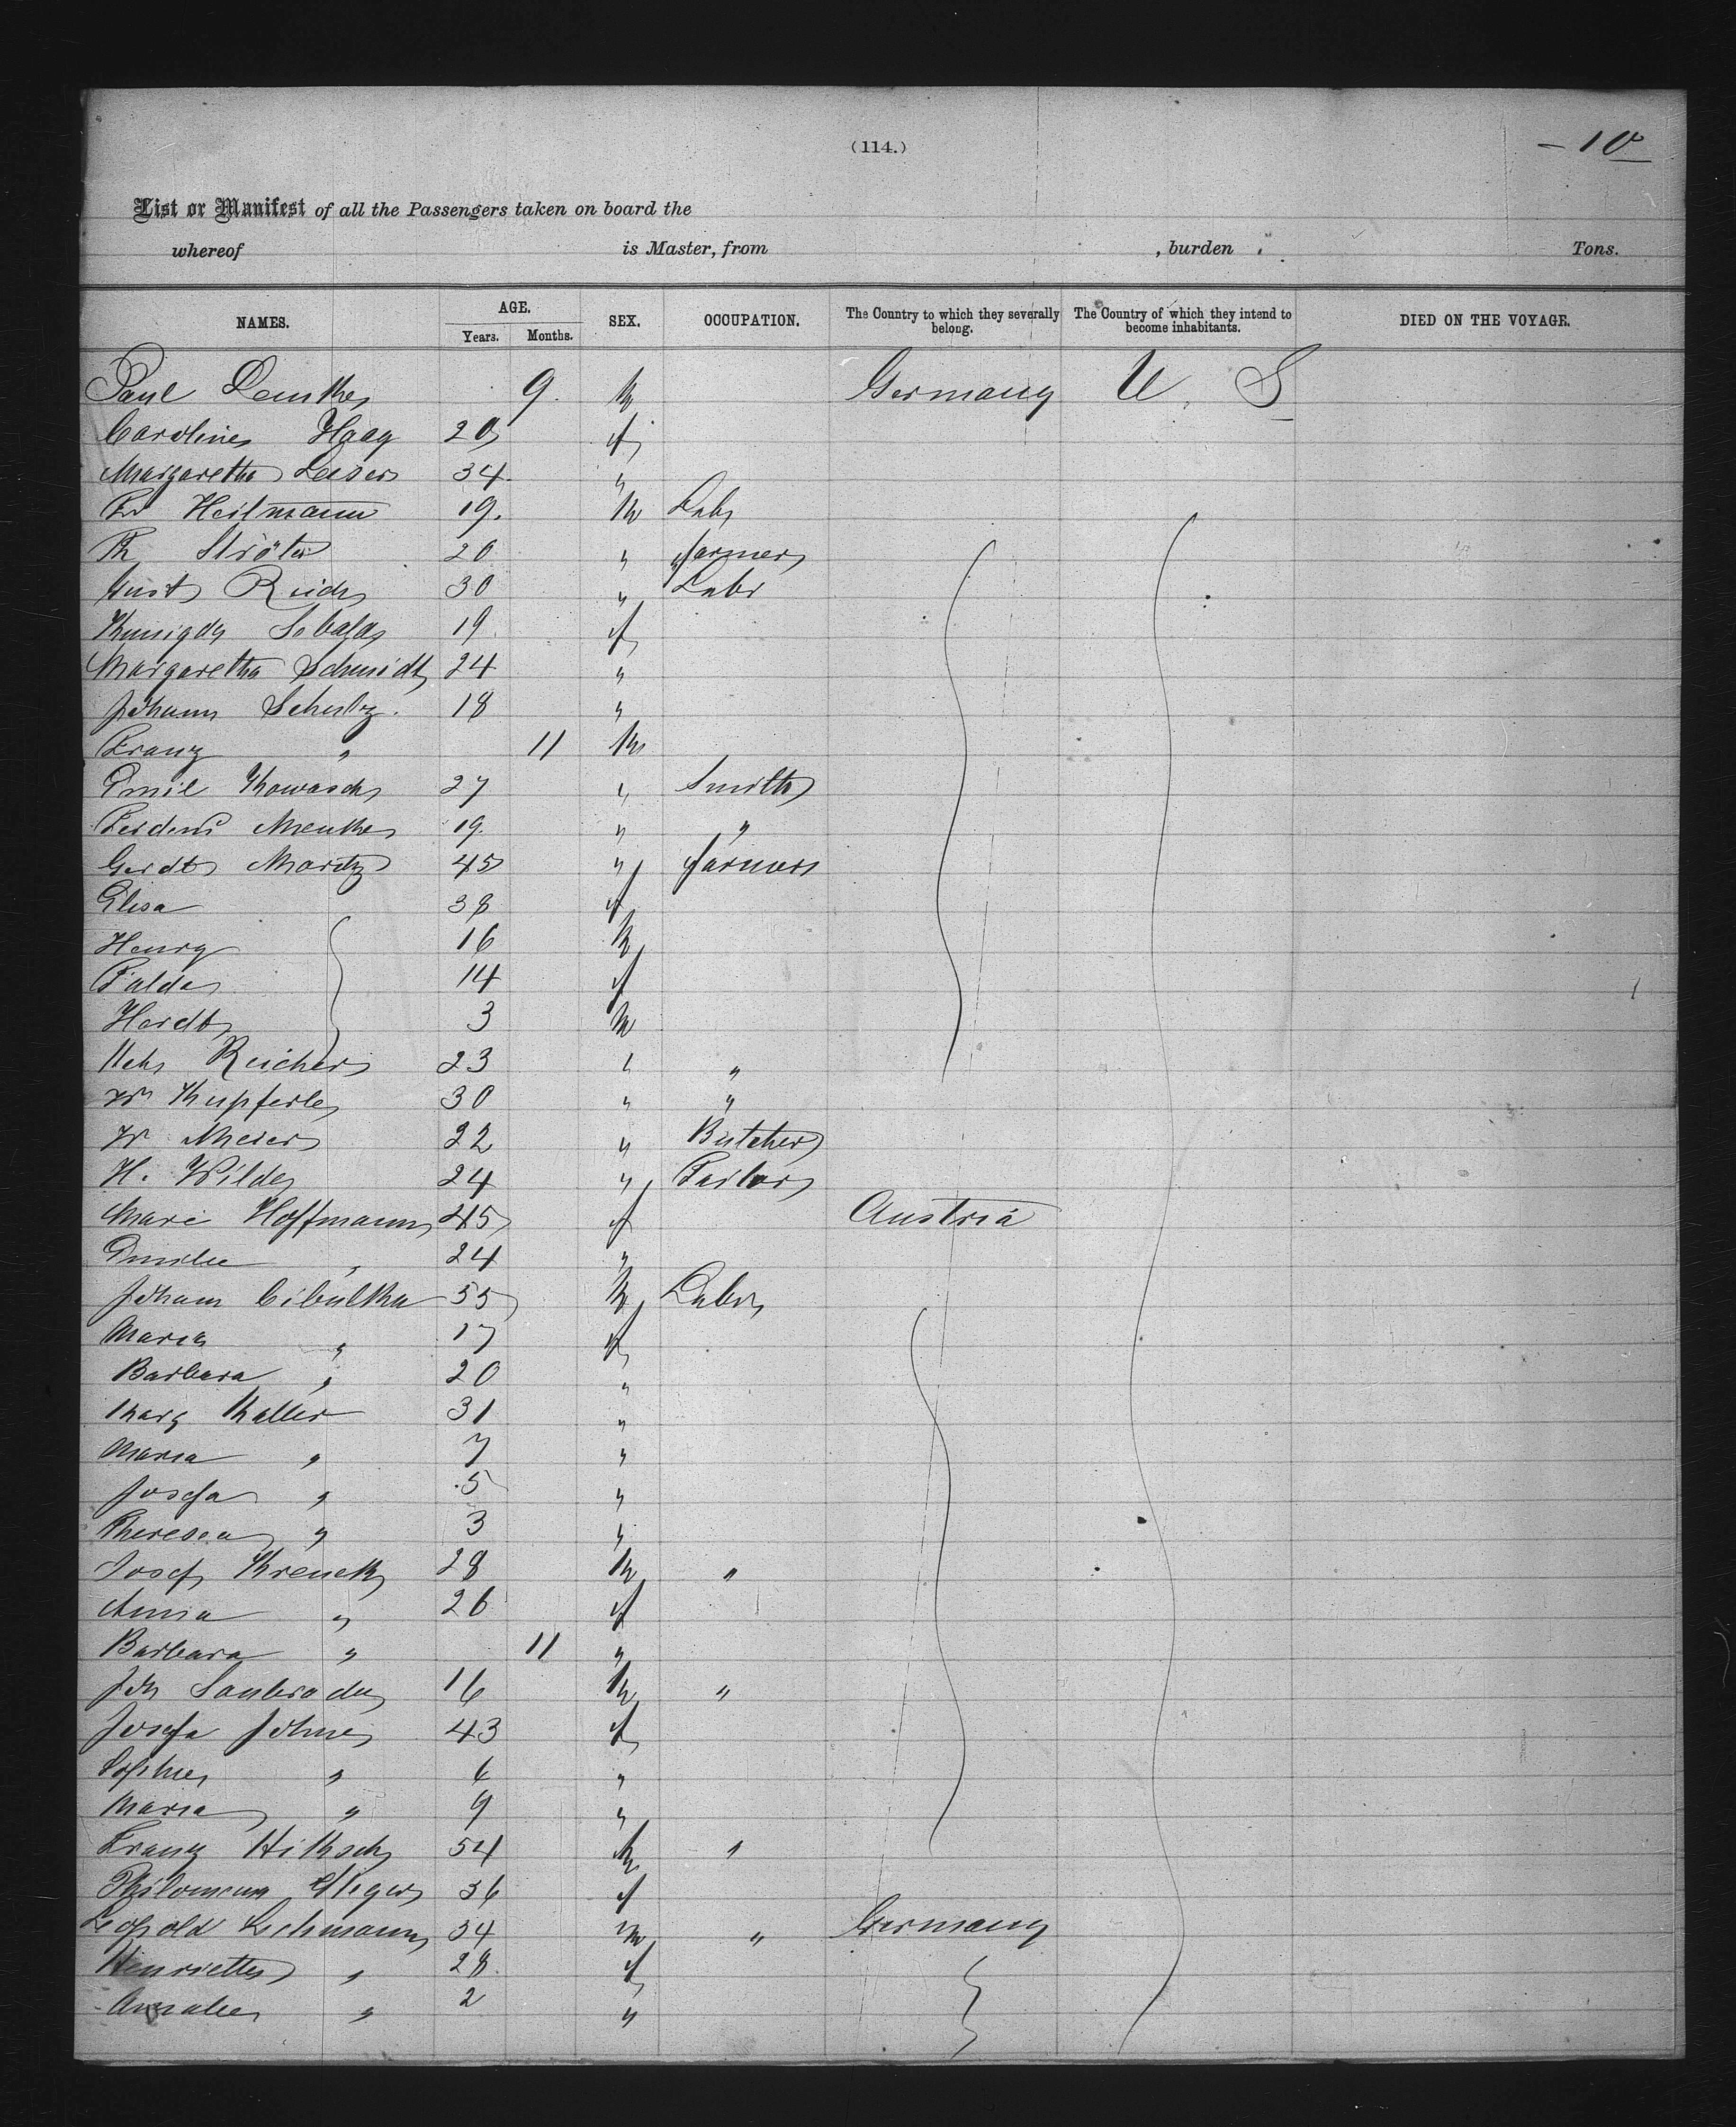 (114.)
– 10
List or Manifest of all the Passengers taken on board the
whereof is Master, from , burden Tons.
NAMES. AGE. Years. Months. SEX. OCCUPATION. The Country to which they severally belong. The Country of which they intend to become inhabitants. DIED ON THE VOYAGE.
Paul 9. m Germany U. S
Caroline Haag 20 f
Margaretha Leiser 34 "
Fr Heilmann 19. m Labr
Th Ströter 20 " farmer
Gust Reich 30 " Labr
19 f
Margaretha Schmidt 24 "
Johann Schulz. 18 "
Franz " 11 m
Emil Kowasch 27 " Smith
Menke 19. " "
Gerdt Moritz 45 " farmer
Elisa 38 f
Henry 16 m
14 f
Herdt 3 m
Reicher 23 " "
Wm Kupferle 30 " "
W Meier 22 " Butcher
H. Wilde 24 " Tailor
Marie Hoffmann 45 f Austria
Emilie " 24 "
Johann Cibulka 55 m Labr
Maria " 17 f
Barbara " 20 "
Marg Kaller 31 "
Maria " 7 "
Josefa " 5 "
Theresea " 3 "
Josef Krenek 28 m "
Anna " 26 f
Barbara " 11 "
Joh 16 m "
Josefa Johne 43 f
Sophie " 6 "
Maria " 9 "
Franz Hiksch 54 m "
Philomena Steger 36 f
Leopold Lehmann 34 m " Germany
Henriette " 28 f
Amalie " 2 "